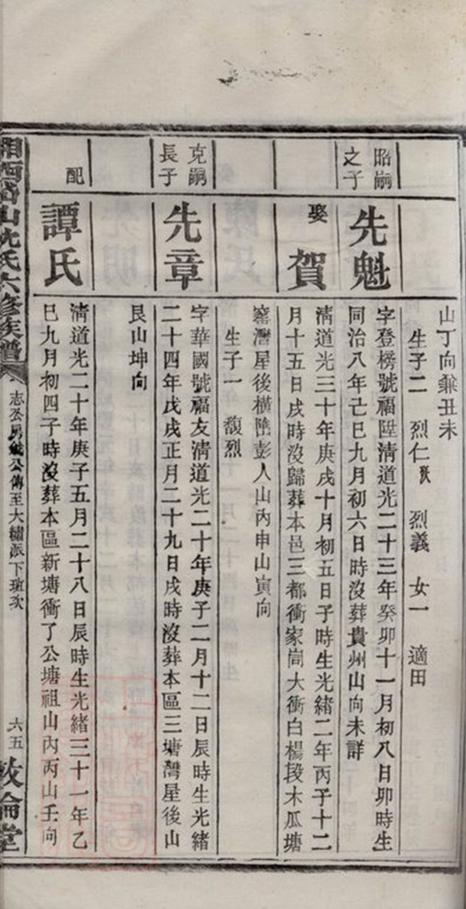 山丁向兼丑未
生子二 烈仁 烈義 女一 適田
昭嗣之子
先魁
字登榜號福陞清道光二十三年癸卯十一月初八日卯時生
同治八年己巳九月初六日時沒葬貴州山向未詳
娶
賀
清道光三十年庚戌十月初五日子時生光緒二年丙子十二
月十五日戌時沒歸葬本邑三都衝家崗大衝白楊段木瓜塘
窰灣屋後橫墈彭人山內申山寅向
生子一 馥烈
克嗣長子
先章
字華國號福友清道光二十年庚子二月十二日辰時生光緒
二十四年戊戌正月二十九日戌時沒葬本區三塘灣屋後山
艮山坤向
配
譚氏
清道光二十年庚子五月二十八日辰時生光緒三十一年乙
巳九月初四子時沒葬本區新塘衝了公塘祖山內丙山壬向
湘西沈氏六修族譜
志
公傳至大繡派下
六五
敦倫堂